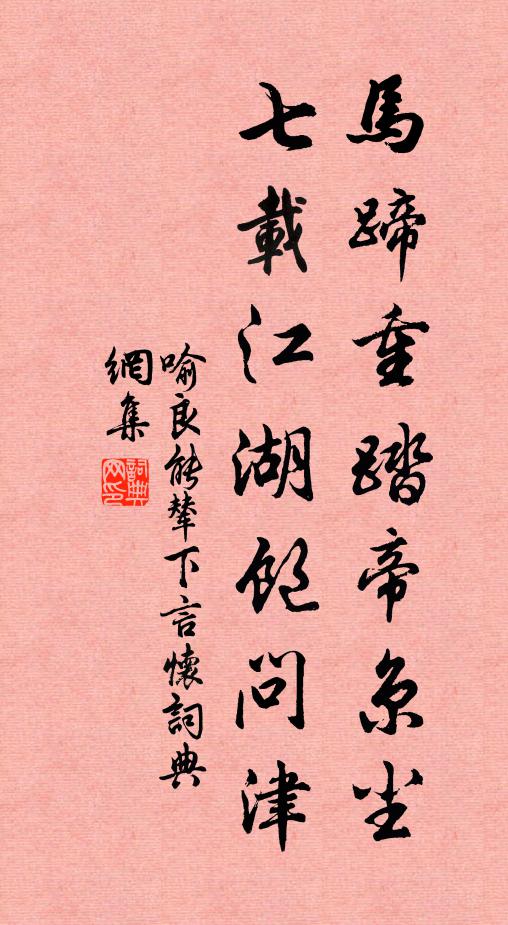 馬蹄重踏帝京尘
七載江湖飽問津
喻良能輦下言懷詞典
網集
詞典
网印